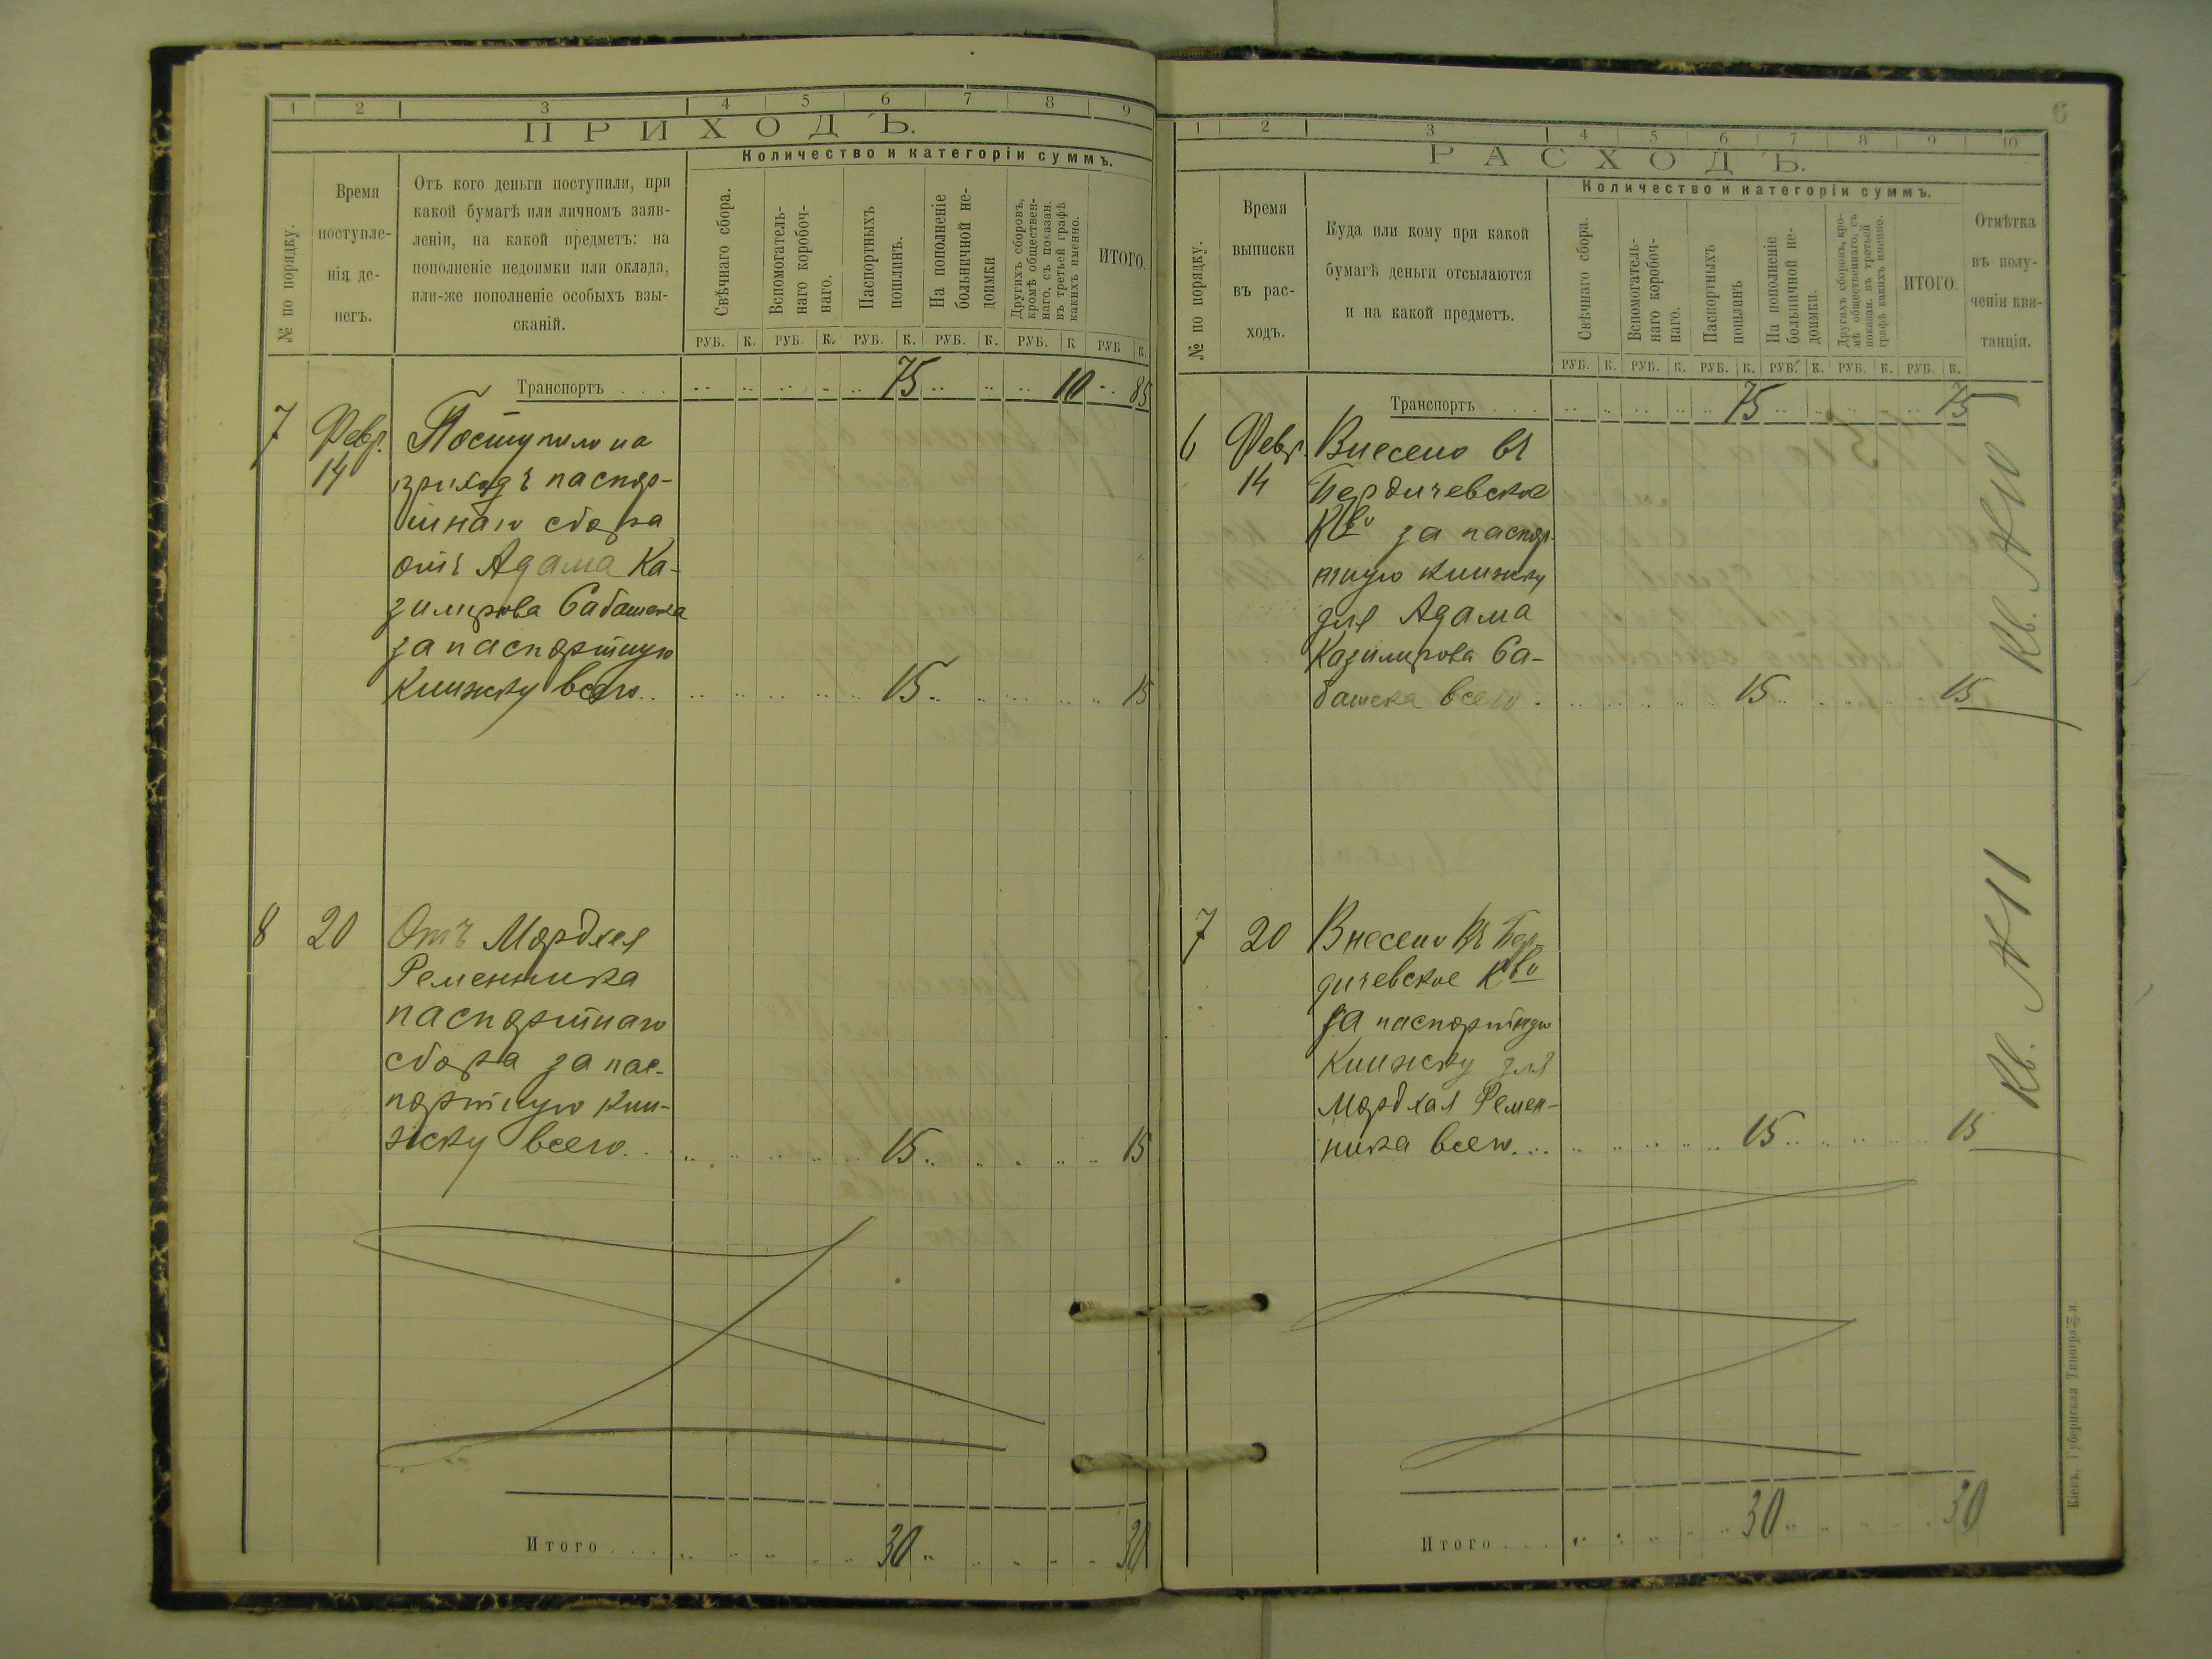 1 2 3 4 5 6 7 8 9
ПРИХОДЪ.
Количество и категоріи суммъ.
№ по порядку.
Время
поступле-
нія де-
негъ.
Отъ кого деньги поступили, при
какой бумагѣ или личномъ заяв-
леніи, на какой предметъ: на
пополненіе недоимки или оклада,
или-же пополненіе особыхъ взы-
сканій.
Свѣчнаго сбора.
Вспомогатель-
наго коробоч-
наго.
Паспортныхъ
пошлинъ.
На пополненіе
больничной не-
доимки
Другихъ сборовъ,
кромѣ обществен-
наго, съ показан.
въ третьей графѣ
какихъ именно.
ИТОГО.
РУБ. К. РУБ. К. РУБ. К. РУБ. К. РУБ. К РУБ К.
Транспортъ . . . 75 10 85
7 Февр. Поступило на
14 приходъ паспор-
тнаго сбора
отъ Адама Ка-
зимирова Сабатека
за паспортную
книжку всего.. 15 15
8 20 Отъ Мордхея
Ременника
паспортнаго
сбора за пас-
портную кни-
жку всего. 15 15
Итого . . . 30 30
6
1 2 3 4 5 6 7 8 9 10
РАСХОДЪ.
Количество и категоріи суммъ.
№ по порядку.
Время
выписки
въ рас-
ходъ.
Куда или кому при какой
бумагѣ деньги отсылаются
и на какой предметъ.
Свѣчнаго сбора.
Вспомогатель-
наго коробоч-
наго.
Паспортныхъ
пошлинъ
На пополненіе
больничной не-
доимки.
Другихъ сборовъ, кро-
мѣ общественнаго, съ
показан. въ третьей
графѣ какихъ именно.
ИТОГО.
Отмѣтка
въ полу-
ченіи кви-
танціи.
РУБ. К. РУБ. К. РУБ. К. РУБ. К. РУБ. К. РУБ. К.
Транспортъ . . . 75 75
6 Февр. Внесено въ
14 Бердичевское
К-во за паспор-
тную книжку
для Адама
Казимирова Са-
батека всего. 15 15
Кв. №10
7 20 Внесено въ Бер-
дичевское К-во
за паспортную
книжку для
Мордхая Ремен-
ника всего... 15 15
Кв. №11
Итого . . . 30 30
Кіевъ, Губернская Типографія